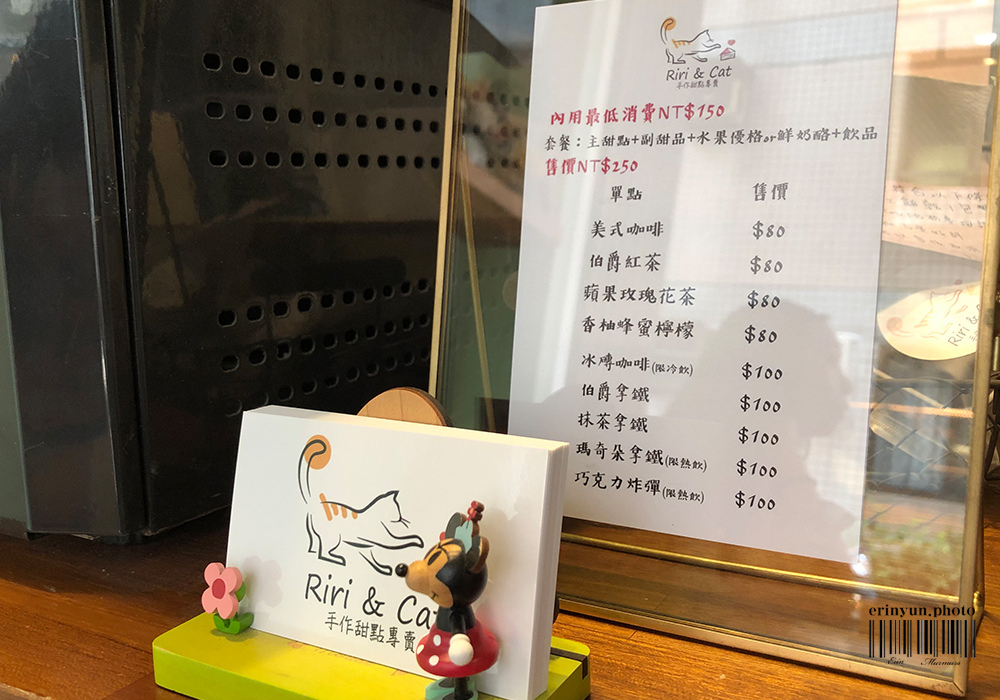 Riri & Cat
手作甜點專賣
內用最低消費NT$150
套餐：主甜點+副甜品+水果優格or鮮奶酪+飲品
售價NT$250
單點 售價
美式咖啡 $80
伯爵紅茶 $80
蘋果玫瑰花茶 $80
香柚蜂蜜檸檬 $80
冰磚咖啡(限冷飲) $100
伯爵拿鐵 $100
抹茶拿鐵 $100
瑪奇朵拿鐵(限熱飲) $100
巧克力炸彈(限熱飲) $100
Riri &
Riri & Ca
手作甜點專賣
erinyun.photo